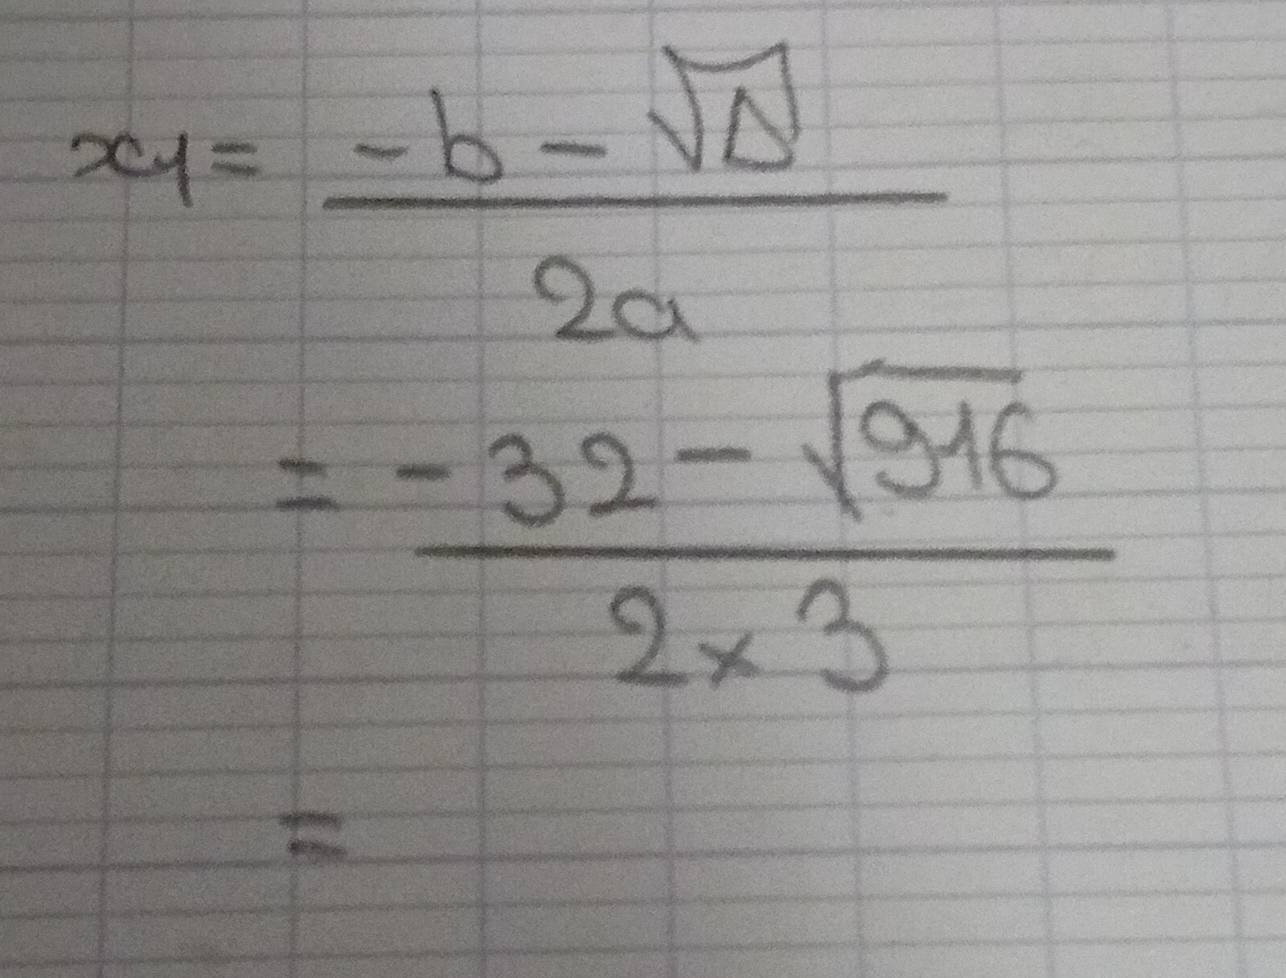 x1 = -b - √Δ
2a
= -32 - √916
2 × 3
=